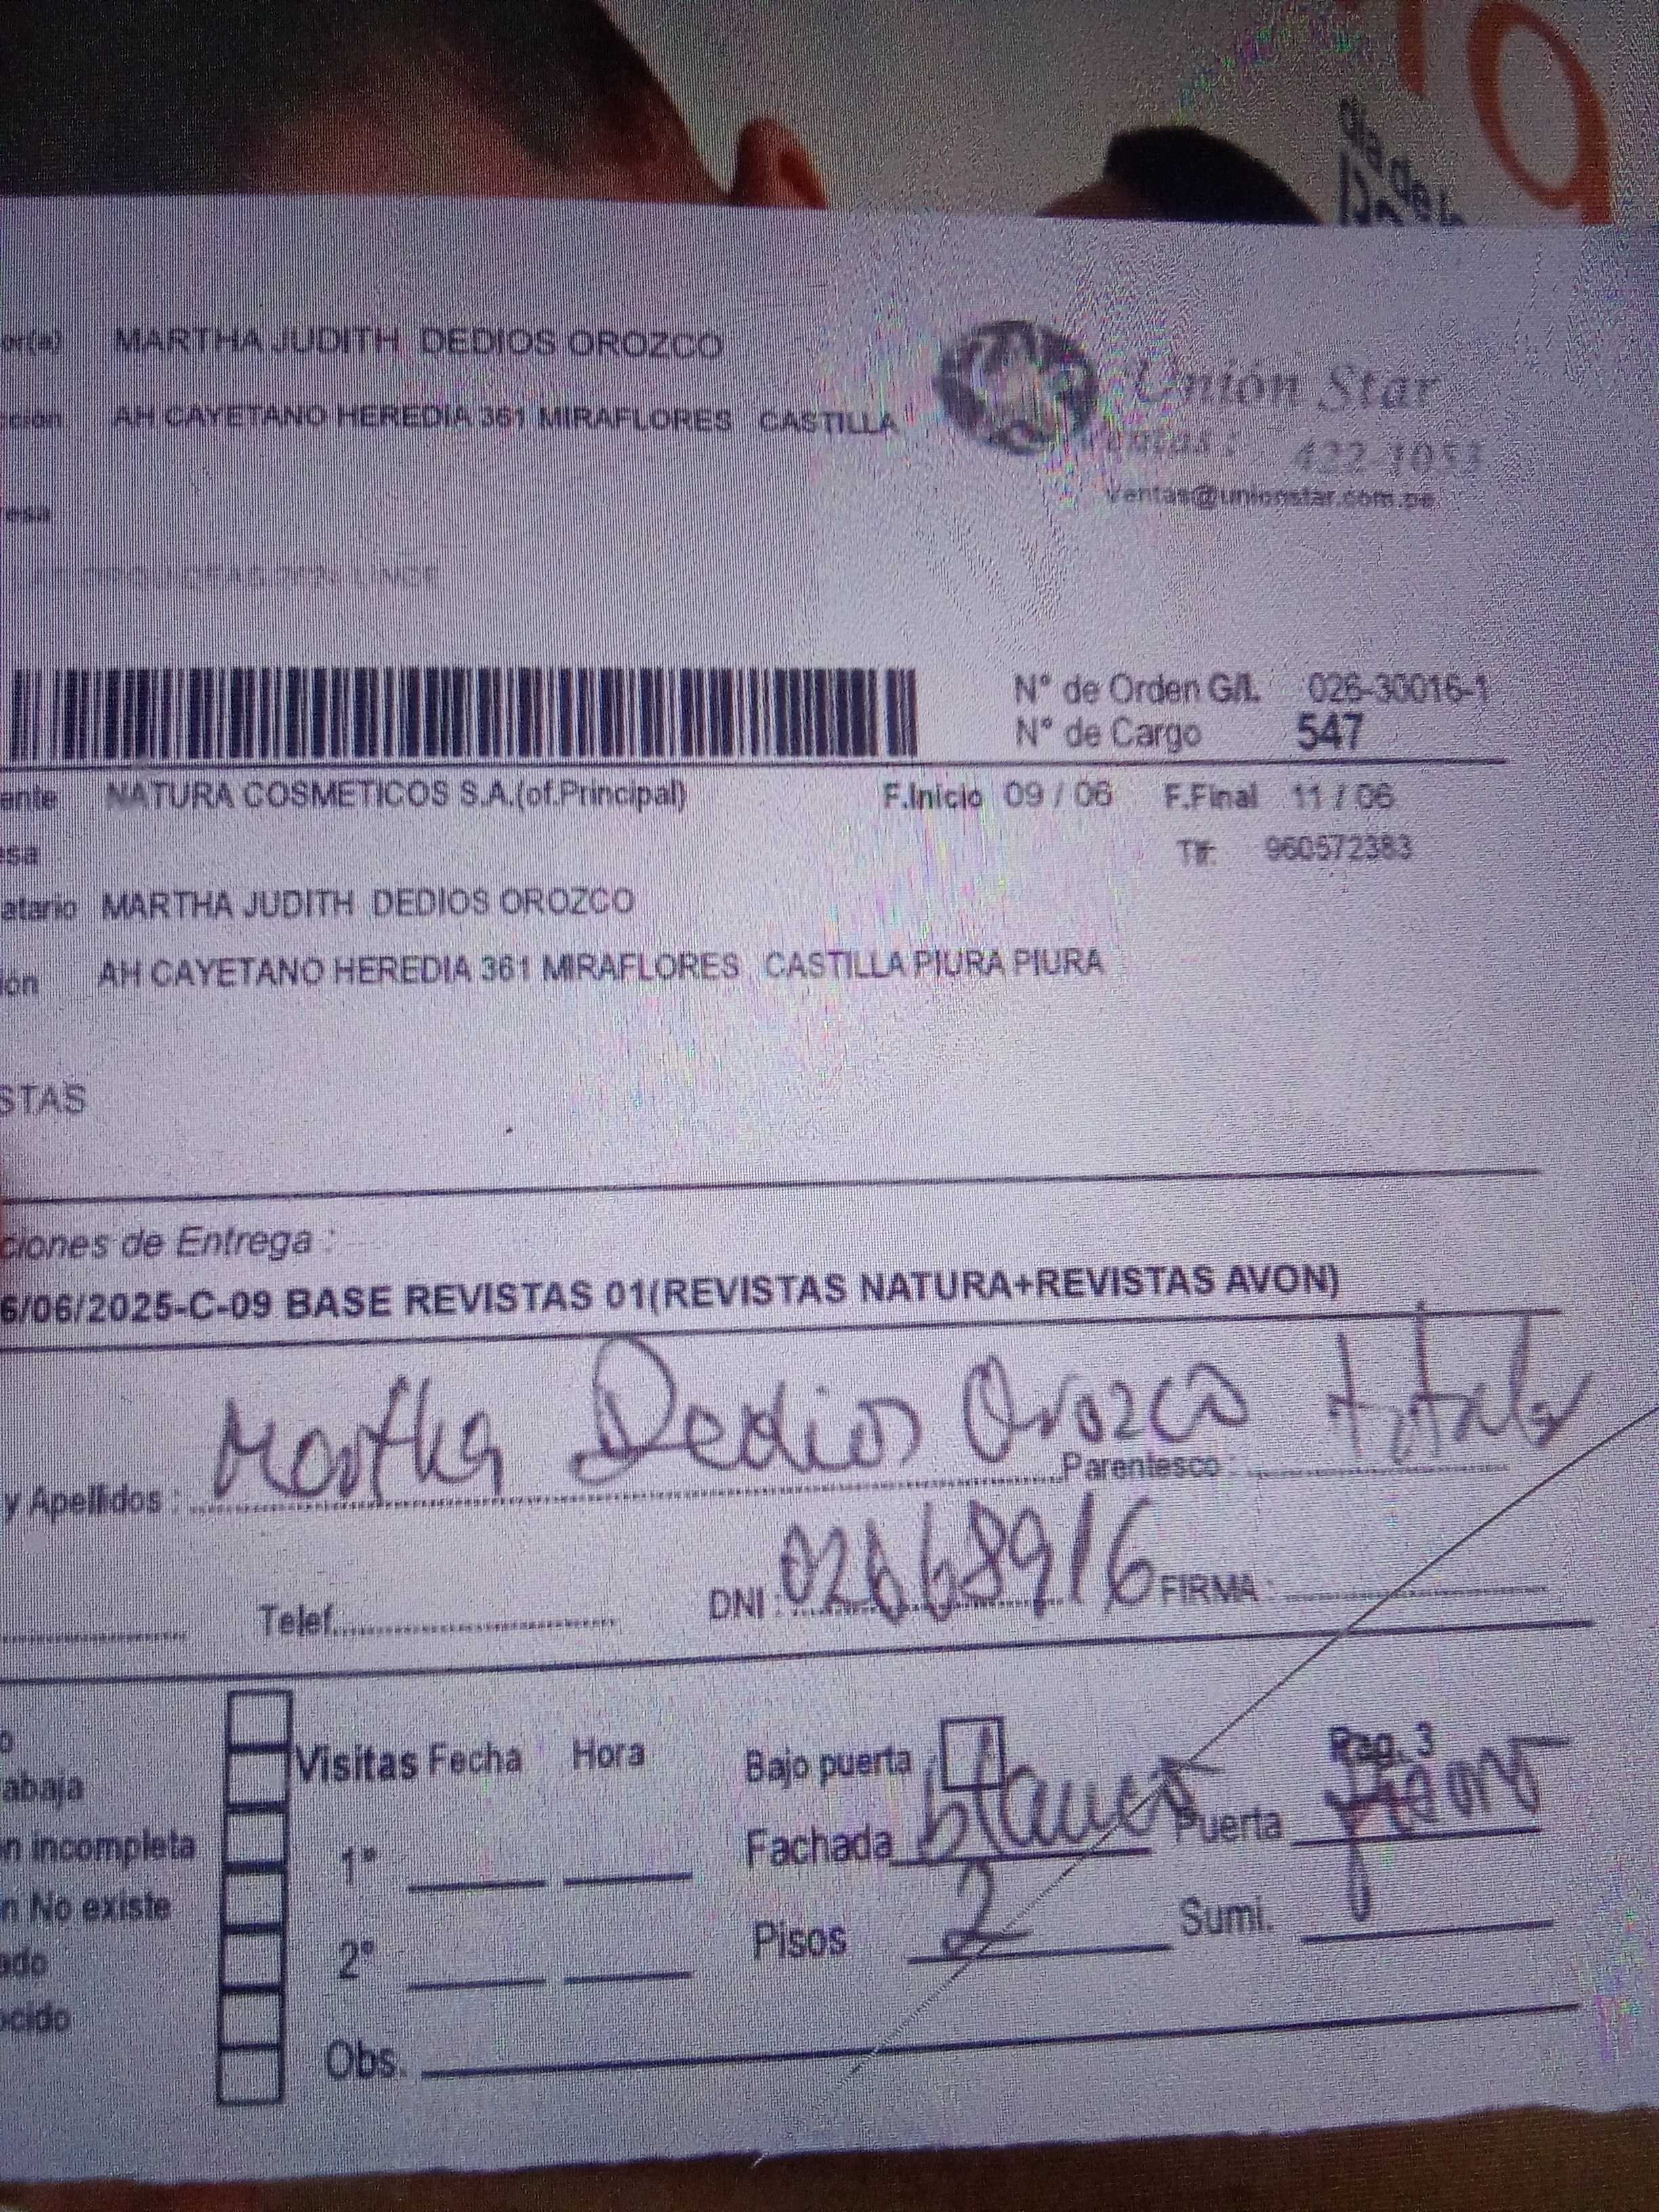 or(a) MARTHA JUDITH DEDIOS OROZCO
Unión Star
cción AH CAYETANO HEREDIA 361 MIRAFLORES CASTILLA
422-1053
ventas@unionstar.com.pe
esa
N° de Orden G/L 026-30016-1
N° de Cargo 547
ente NATURA COSMETICOS S.A.(of.Principal) F.Inicio 09 / 06 F.Final 11 / 06
esa Tlf: 960572383
atario MARTHA JUDITH DEDIOS OROZCO
ión AH CAYETANO HEREDIA 361 MIRAFLORES CASTILLA PIURA PIURA
STAS
ciones de Entrega :
6/06/2025-C-09 BASE REVISTAS 01(REVISTAS NATURA+REVISTAS AVON)
y Apellidos : Martha Dedios Orozco Parentesco : titular
Telef. DNI : 02668916 FIRMA :
Visitas Fecha Hora Bajo puerta Pag. 3
abaja
n incompleta 1° Fachada blanco Puerta
n No existe
ado 2° Pisos 2 Sumi.
ocido
Obs.